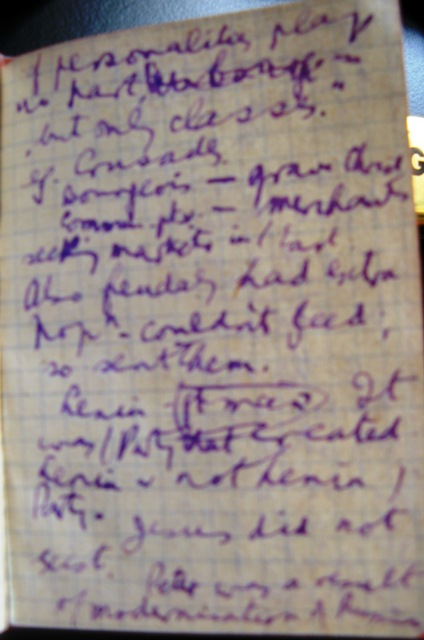 personalities play
no part, 
but only classes."
eg. Crusades
Bourgeois — grain
Commun. pts. — merchants
seeking markets in / East.
Also feudals had extra
popn - couldn't feed;
so sent them.
Lenin It
was / Party that created
Lenin & not Lenin /
Party. Jesus did not
exist. Peter was a result
of modernisation of Russia
G